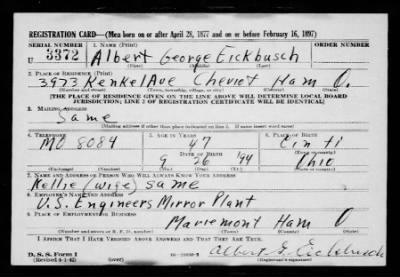 REGISTRATION CARD—(Men born on or after April 28, 1877 and on or before February 16, 1897)
SERIAL NUMBER 1. NAME (Print) ORDER NUMBER
U 3372 Albert George Eickbusch
(First) (Middle) (Last)
2. PLACE OF RESIDENCE (Print)
3973 Kenkel Ave Cheviot Ham O.
(Number and street) (Town, township, village, or city) (County) (State)
[THE PLACE OF RESIDENCE GIVEN ON THE LINE ABOVE WILL DETERMINE LOCAL BOARD
JURISDICTION; LINE 2 OF REGISTRATION CERTIFICATE WILL BE IDENTICAL]
3. MAILING ADDRESS
Same
[Mailing address if other than place indicated on line 2. If same insert word same]
4. TELEPHONE 5. AGE IN YEARS 6. PLACE OF BIRTH
MO 8084 47 Cin ti
DATE OF BIRTH (Town or county)
9 26 94 Ohio
(Exchange) (Number) (Mo.) (Day) (Yr.) (State or country)
7. NAME AND ADDRESS OF PERSON WHO WILL ALWAYS KNOW YOUR ADDRESS
Nellie (wife) same
8. EMPLOYER'S NAME AND ADDRESS
U.S. Engineers Mirror Plant
9. PLACE OF EMPLOYMENT OR BUSINESS
Mariemont Ham O
(Number and street or R. F. D. number) (Town) (County) (State)
I AFFIRM THAT I HAVE VERIFIED ABOVE ANSWERS AND THAT THEY ARE TRUE.
D. S. S. Form 1
(Revised 4-1-42) Albert G. Eickbusch